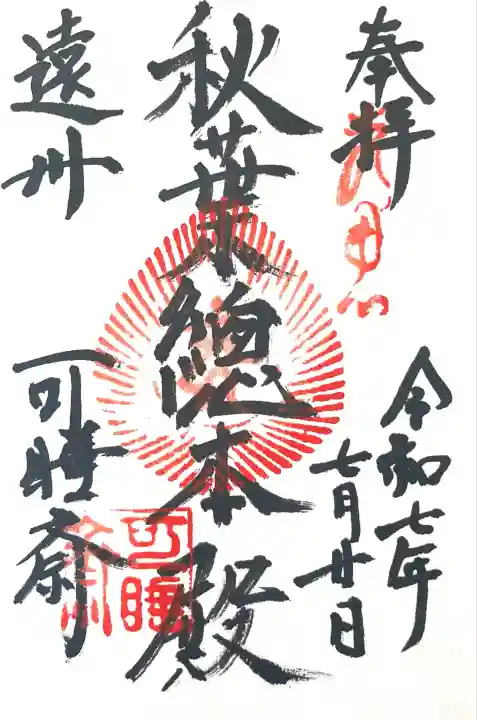 奉拝
令和七年
七月廿日
秋葉總本殿
遠州
可睡斎
可睡